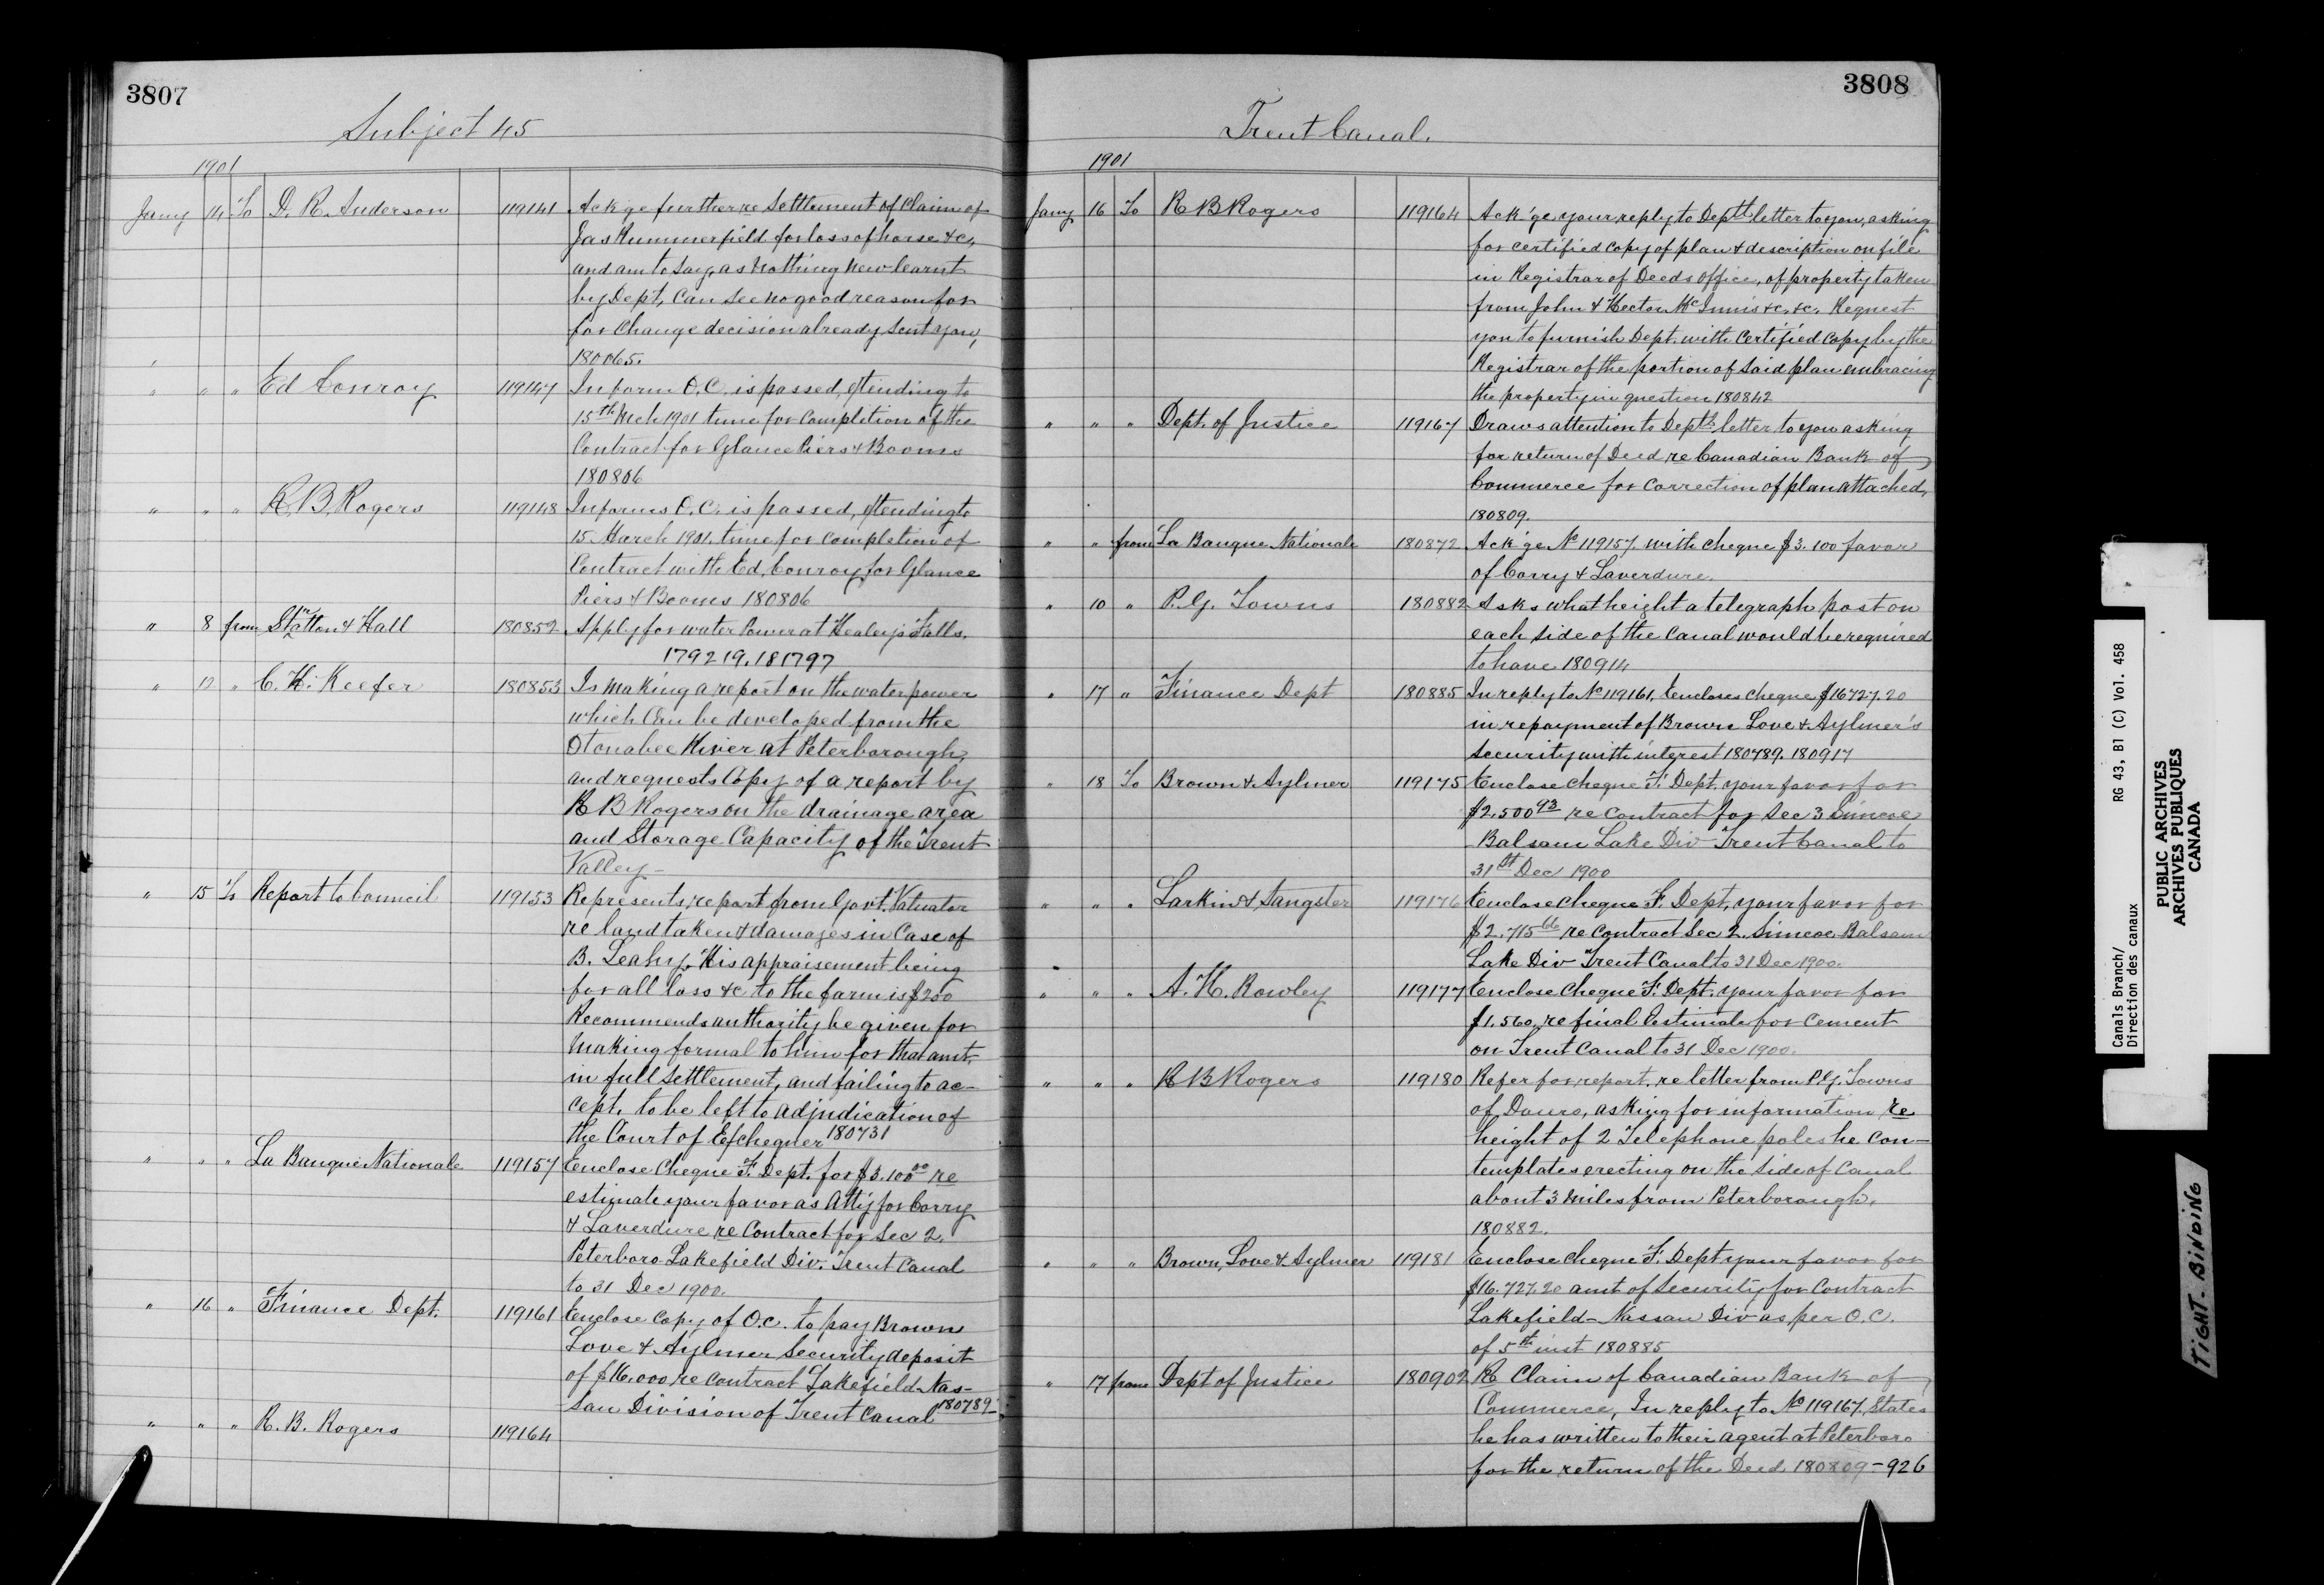 3807
Subject 45
1901
Jany 14 To D. R. Anderson 119141 Ack'ge further re Settlement of Claim of
Jas Kummerfield for loss of horse &c,
and am to say, as nothing new learnt
by Dept, Can see no good reason for
for Change decision already sent you,
180065.
" " " Ed Conroy 119147 Inform O.C. is passed, extending to
15th Mch 1901 time for Completion of the
Contract for Glance Piers & Booms
180806
" " " R. B. Rogers 119148 Informs O.C. is passed, extending to
15 March 1901, time for completion of
Contract with Ed, Conroy for Glance
Piers & Booms 180806
" 8 from Stratton & Hall 180852 Apply for water Power at Healey's Falls.
179219. 181797
" 12 " C. H. Keefer 180853 Is making a report on the water power
which Can be developed from the
Otonabee River at Peterborough,
and requests Copy of a report by
R B Rogers on the drainage area
and Storage Capacity of the Trent
Valley -
" 15 To Report to Council 119153 Represents, report from Govt. Valuator
re land taken & damages in Case of
B. Leahy, His appraisement being
for all loss &c to the farm is $200
Recommends authority be given for
Making formal to him for that amt.
in full settlement, and failing to ac-
cept, to be left to adjudication of
the Court of Exchequer 180731
" " " La Banque Nationale 119157 Enclose Cheque F. Dept. for $3.100 00 re
estimate your favor as Atty for Corry
& Laverdure re Contract for Sec 2.
Peterboro Lakefield Div. Trent Canal
to 31 Dec 1900.
" 16 " Finance Dept. 119161 Enclose Copy of O.C. to pay Brown
Love & Aylmer Security deposit
of $16.000 re Contract Lakefield-Nas-
sau Division of Trent Canal 180789
" " " R. B. Rogers 119164
3808
Trent Canal.
1901
Jany 16 To R B Rogers 119164 Ack'ge your reply to Deptl letter to you, asking
for certified copy of plan & description on file
in Registrar of Deeds Office, of property taken
from John & Hector McInnis &c. &c. Request
you to furnish Dept. with Certified Copy by the
Registrar of the portion of said plan embracing
the property in question 180842
" " " Dept. of Justice 119167 Draws attention to Depts letter to you asking
for return of Deed re Canadian Bank of
Commerce for correction of plan attached,
180809.
" " from La Banque Nationale 180872 Ack'ge No 119157. with cheque $3.100 favor
of Corry & Laverdure.
" 10 " P. G. Towns 180882 Asks what height a telegraph post on
each side of the Canal would be required
to have 180914
" 17 " Finance Dept 180885 In reply to No 119161, Encloses cheque $16727.20
in repayment of Brown Love & Aylmer's
security with interest 180789. 180917
" 18 To Brown & Aylmer 119175 Enclose Cheque F. Dept. your favor for
$2.500 93 re Contract for Sec 3 Simcoe
Balsam Lake Div Trent Canal to
31st Dec 1900
" " " Larkin & Sangster 119176 Enclose Cheque F. Dept, your favor for
re Contract Sec 2. Simcoe Balsam
Lake Div Trent Canal to 31 Dec 1900.
" " " A. H. Rowley 119177 Enclose Cheque F. Dept. your favor for
$1.560, re final Estimate for Cement
on Trent Canal to 31 Dec 1900.
" " " R B Rogers 119180 Refer for report, re letter from P. G. Towns
of Douro, asking for information re
height of 2 Telephone poles he Con-
templates erecting on the side of Canal
about 3 miles from Peterborough.
180882.
" " " Brown, Love & Aylmer 119181 Enclose Cheque F. Dept your favor for
$16.727.20 amt of Security for Contract
Lakefield-Nassau Div as per O.C.
of 5th inst 180885
" 17 from Dept of Justice 180902 Re Claim of Canadian Bank of
Commerce, In reply to No 119167, States
he has written to their agent at Peterboro
for the return of the Deed 180809-926
Canals Branch/
Direction des canaux
RG 43, B1 (C) Vol. 458
PUBLIC ARCHIVES
ARCHIVES PUBLIQUES
CANADA
TIGHT BINDING